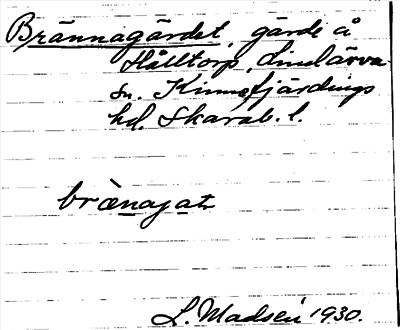 Brännagärdet, gärde å
Hålltorp, Lindärva
sn. Kinnefjärdings
hd. Skarab. l.
brænagat
L. Madsén 1930.